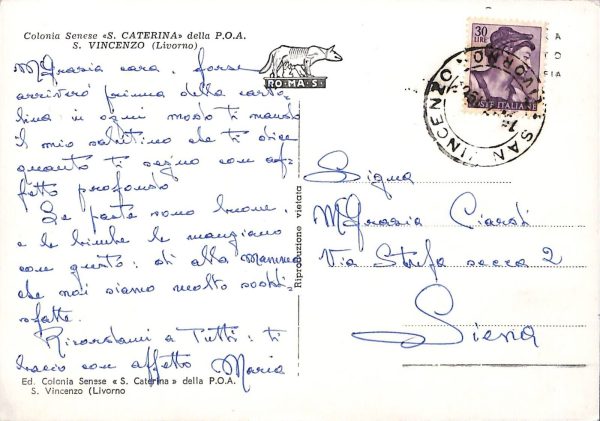 Colonia Senese «S. CATERINA» della P.O.A.
S. VINCENZO (Livorno)
M Grazia cara, forse
arriverò prima della carto-
lina in ogni modo ti mando
il mio salutino che ti dice
quanto ti seguo con af-
fetto profondo
Le paste sono buone,
e le bimbe le mangiano
con gusto: dì alla Mamma
che noi siamo molto soddi-
sfatte.
Ricordami a Tutti: ti
bacio con affetto Maria
Ed. Colonia Senese «S. Caterina» della P.O.A.
S. Vincenzo (Livorno
RO·MA·S·
Riproduzione vietata
30
LIRE
POSTE ITALIANE
SAN VINCENZO
LIVORNO
Signa
M Grazia Ciardi
Via Stufa secca 2
Siena